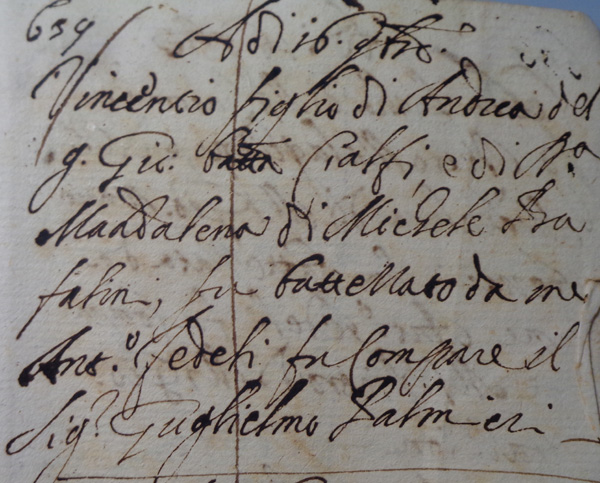 659
A dì 16. 9bre.
Vincentio figlio di Andrea del
q. Gio: batta Cialfi, e di D.a
Madalena di Michele
falini, fu battezzato da me
Ant.o Fedeli fu Compare il
Sig.r Guglielmo Palmieri